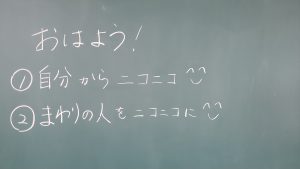 おはよう!
① 自分から ニコニコ
② まわりの人を ニコニコに